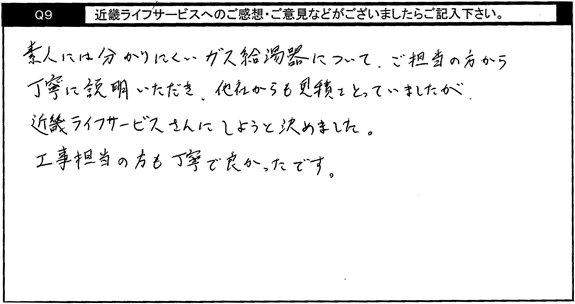 Q9 近畿ライフサービスへのご感想・ご意見などがございましたらご記入下さい。
素人には分かりにくいガス給湯器について、ご担当の方から
丁寧に説明いただき、他社からも見積をとっていましたが
近畿ライフサービスさんにしようと決めました。
工事担当の方も丁寧で良かったです。